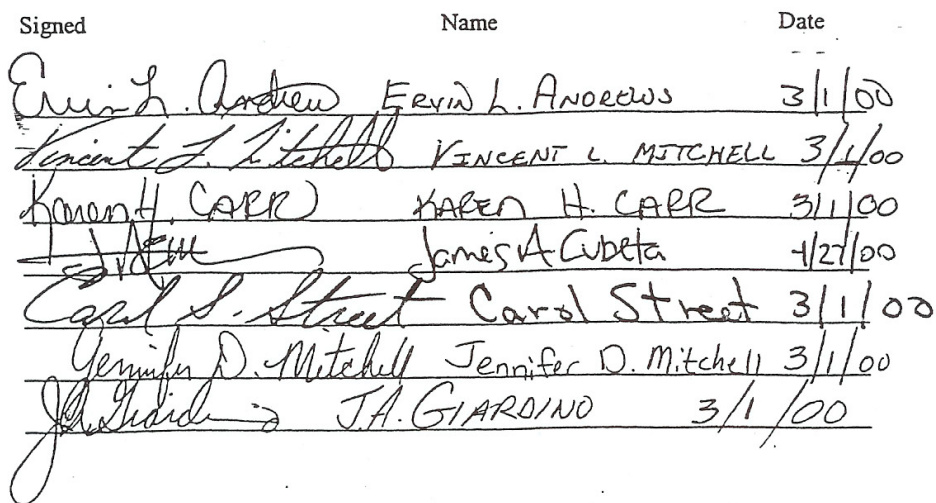 Signed Name Date
Ervin L. Andrew ERVIN L. ANDREWS 3/1/00
Vincent L. Mitchell VINCENT L. MITCHELL 3/1/00
Karen H. CARR KAREN H. CARR 3/1/00
James A Cubeta 1/27/00
Carol S. Street Carol Street 3/1/00
Jennifer D. Mitchell Jennifer D. Mitchell 3/1/00
J.A. Giardino J.A. GIARDINO 3/1/00